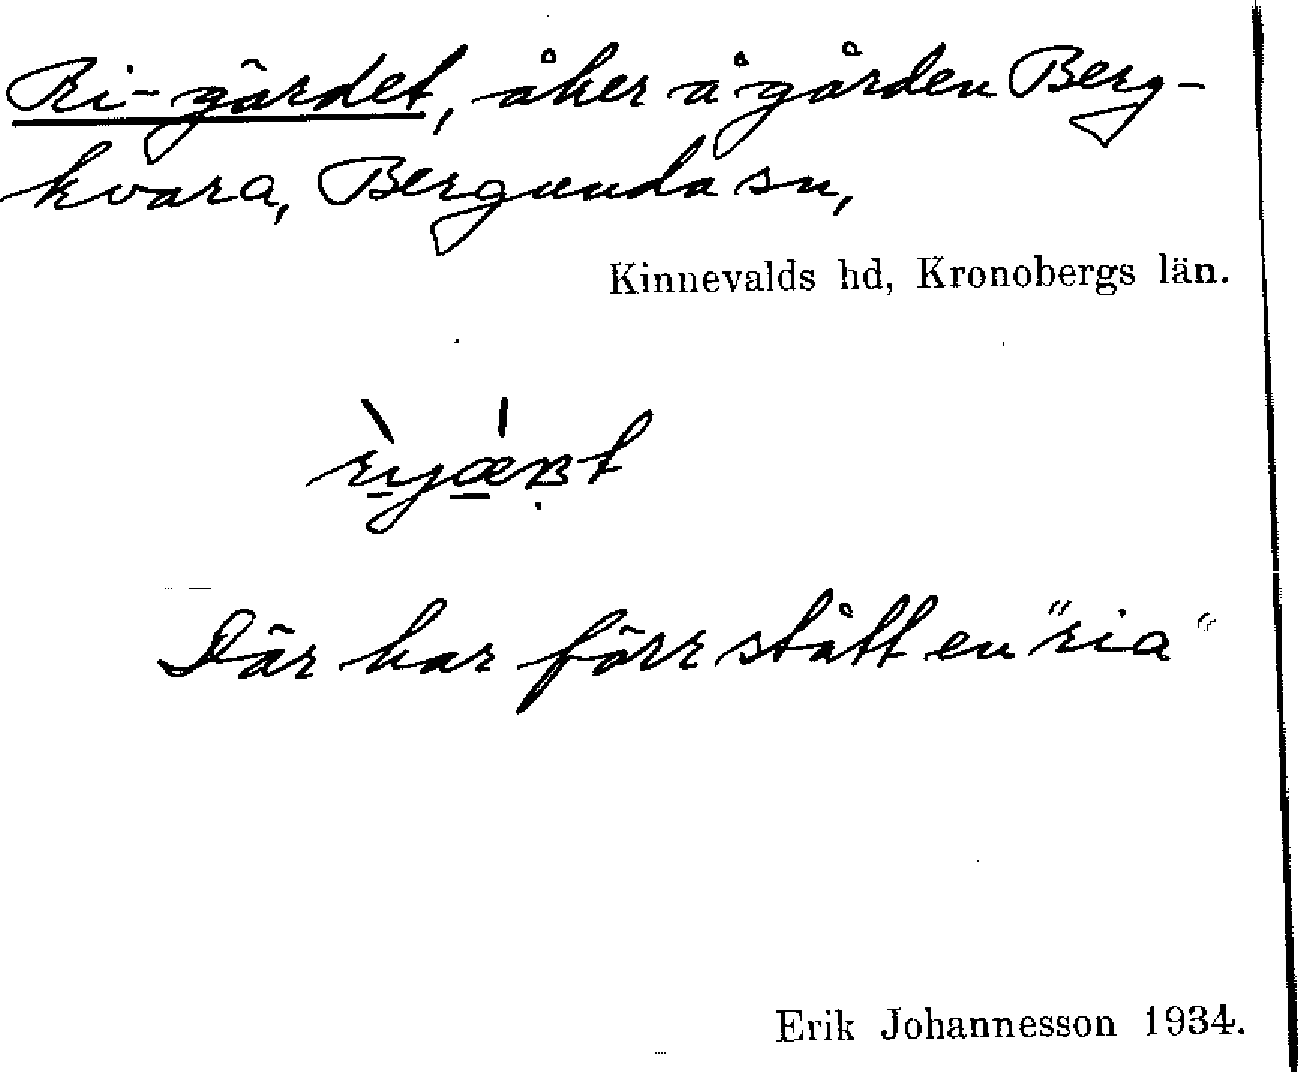 Ri-gärdet, åker å gården Berg-
kvara, Bergunda sn,
Kinnevalds hd, Kronobergs län.
Där har förr stått en "ria"
Erik Johannesson 1934.